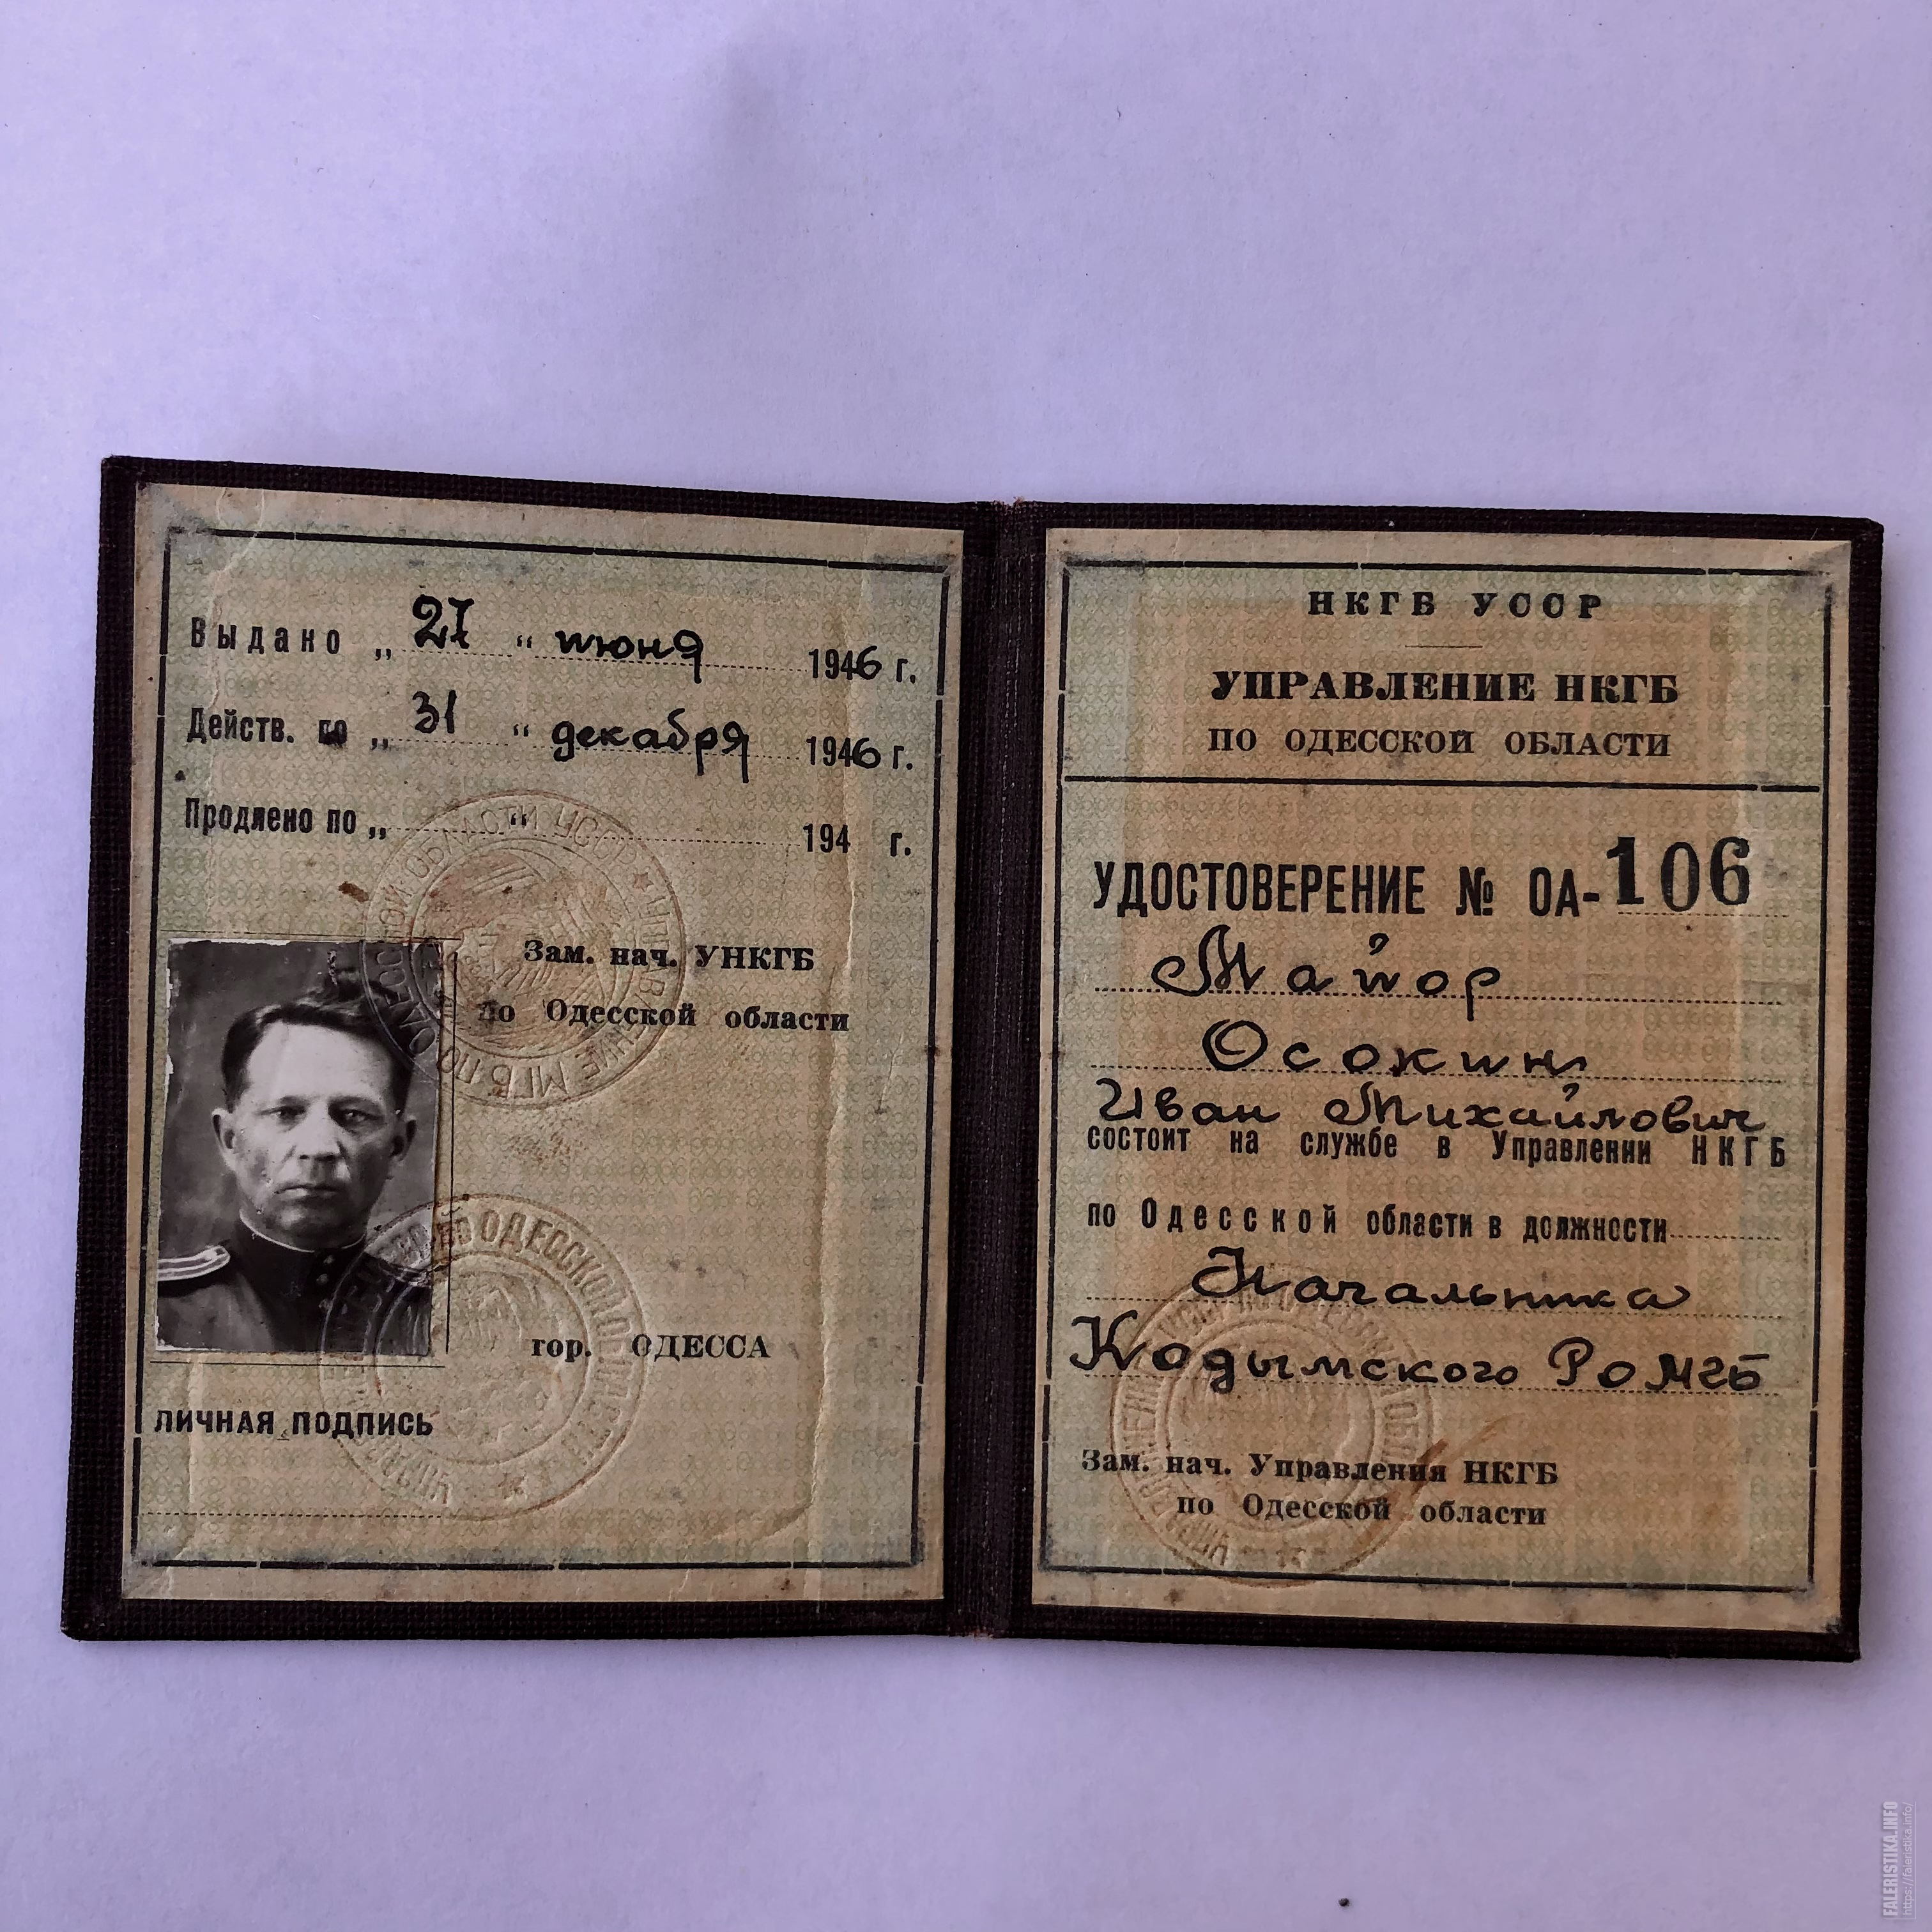 Выдано „ 27 “ июня 1946 г.
Действ. по „ 31 “ декабря 1946 г.
Продлено по „ “ 194 г.
Зам. нач. УНКГБ
по Одесской области
гор. ОДЕССА
ЛИЧНАЯ ПОДПИСЬ
УПРАВЛЕНИЕ МГБ ПО ОДЕССКОЙ ОБЛАСТИ УССР
ПО ОДЕССКОЙ ОБЛАСТИ
НКГБ УССР
УПРАВЛЕНИЕ НКГБ
ПО ОДЕССКОЙ ОБЛАСТИ
УДОСТОВЕРЕНИЕ № ОА-106
Майор
Осокин
Иван Михайлович
состоит на службе в Управлении НКГБ
по Одесской области в должности
Начальника
Кодымского РО МГБ
Зам. нач. Управления НКГБ
по Одесской области
FALERISTIKA.INFO
https://faleristika.info/